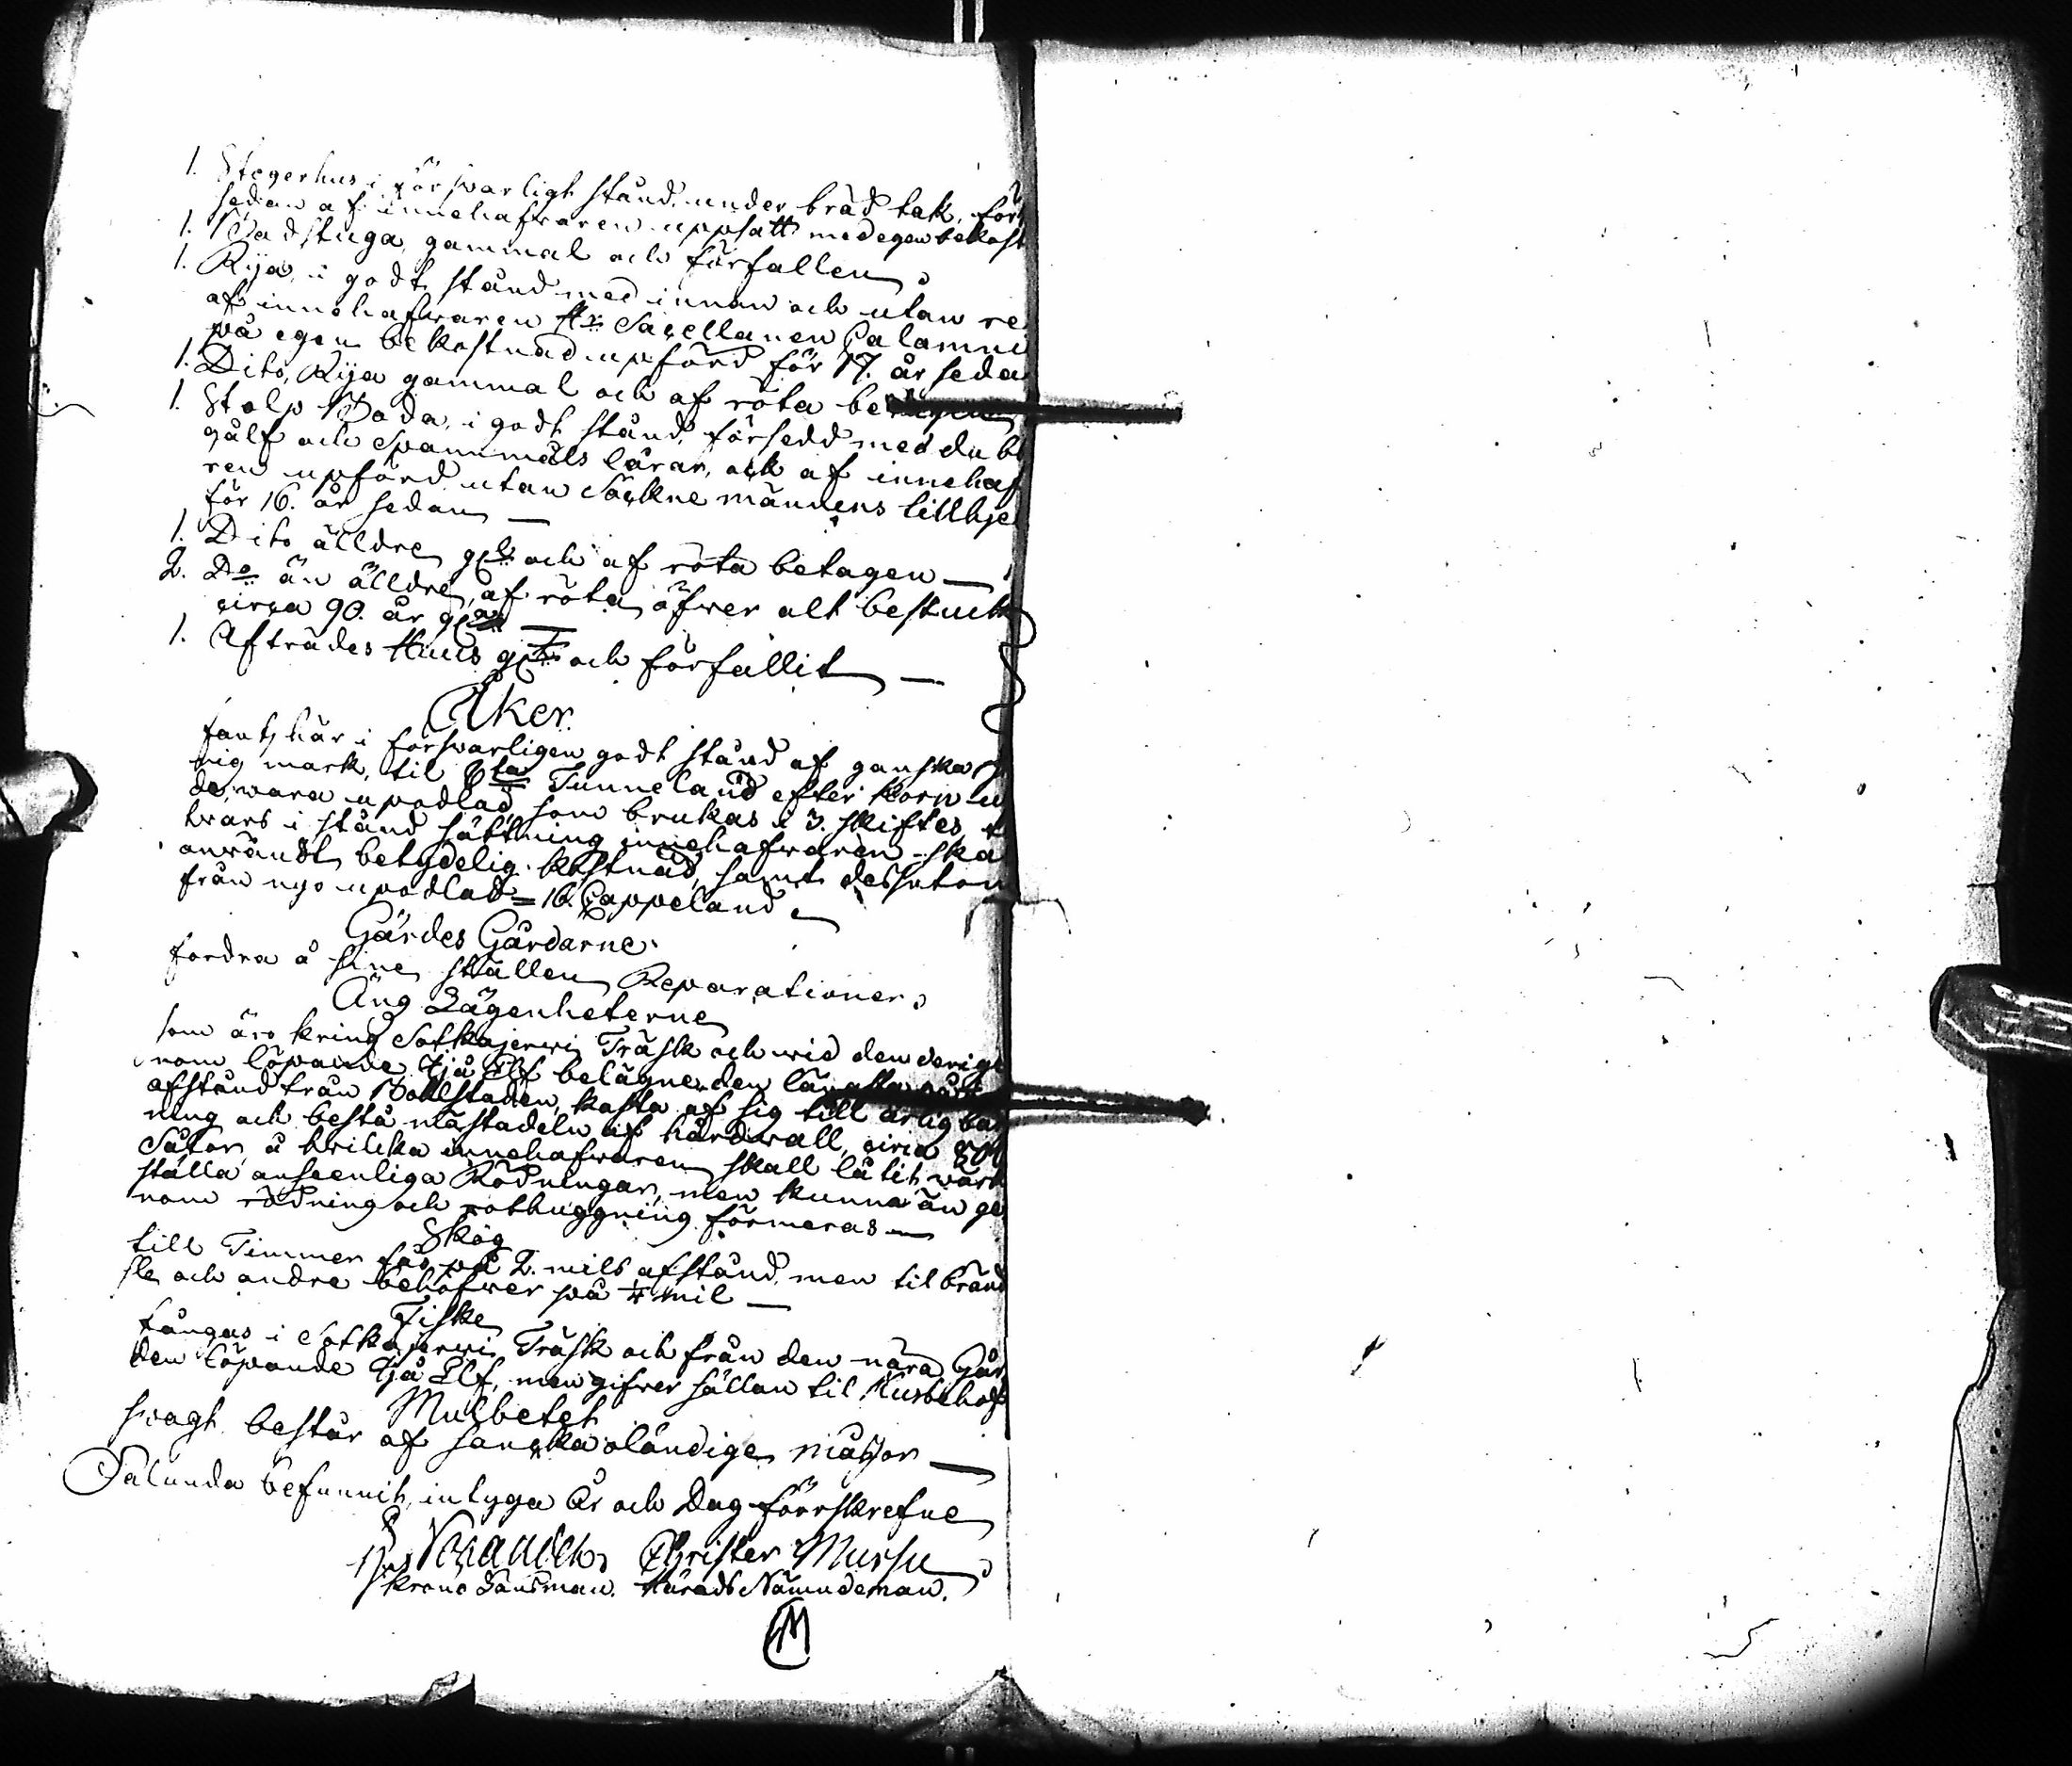 1. Stegerhus i försvarligt stånd under bräd tak, för
sedan af innehafvaren uppsatt med egen bekost
1. Badstuga, gammal och förfallen
1. Rija, i godt stånd med innan och utan re
af innehafvaren Hr Sacellanen Calamni
på egen bekostnad upförd för 17. år seda
1. Dito, Rija gammal och af röta betagen
1. Stolp Boda, i godt stånd, försedd med du
gålf och Spannmåls lårar, ock af innehaf
ren upförd utan Säcknemännens tillhje
för 16. år sedan —
1. Dito älldre gl och af röta betagen —
2. Do än älldre, af röta öfver alt bestuck
circa 90. år gl —
1. Afträdes Huus glt och förfallit —
Åker
fants här i försvarligen godt stånd af ganska
nig mark, til 8ta Tunneland efter korn u
de, vara upodlad, som brukas i 3. skiftes, t
hvars i stånd sättning innehafvaren ska
användt betydelig kostnad, samt dessutan
från nyo upodlad = 16. Cappeland
Gärdes Gårdarne
fordra å sine ställen Reparationer
Äng Lägenheterne
som äro kring Sotkajerwi Träsk och wid den derige
nom löpande Ijå Elf belägne, den
afstånd från Bohlstaden, kasta af sig till årlig bär
ning och bestå mästadeln af hårdvall, circa
Såtor, å hvilka innehafvaren skall låtit värk
ställa anseenliga Rödningar, men kunna än ge
nom rödning och rothuggning förmeras —
Skog
till Timmer fås på 2. mils afstånd, men til bränd
sle och andre behofver på ¼ mil —
Fiske
fångas i Sotkajerwi Träsk och från den nära Går
den löpande Ijå Elf, men gifver sällan til Husbehof
Mulbetet
svagt består af sanka oländige måssor —
Sålunda befunnit, intyga År och Dag förrskrefne
Christer Mursu
Krono Länsman. Härads Nämndeman.